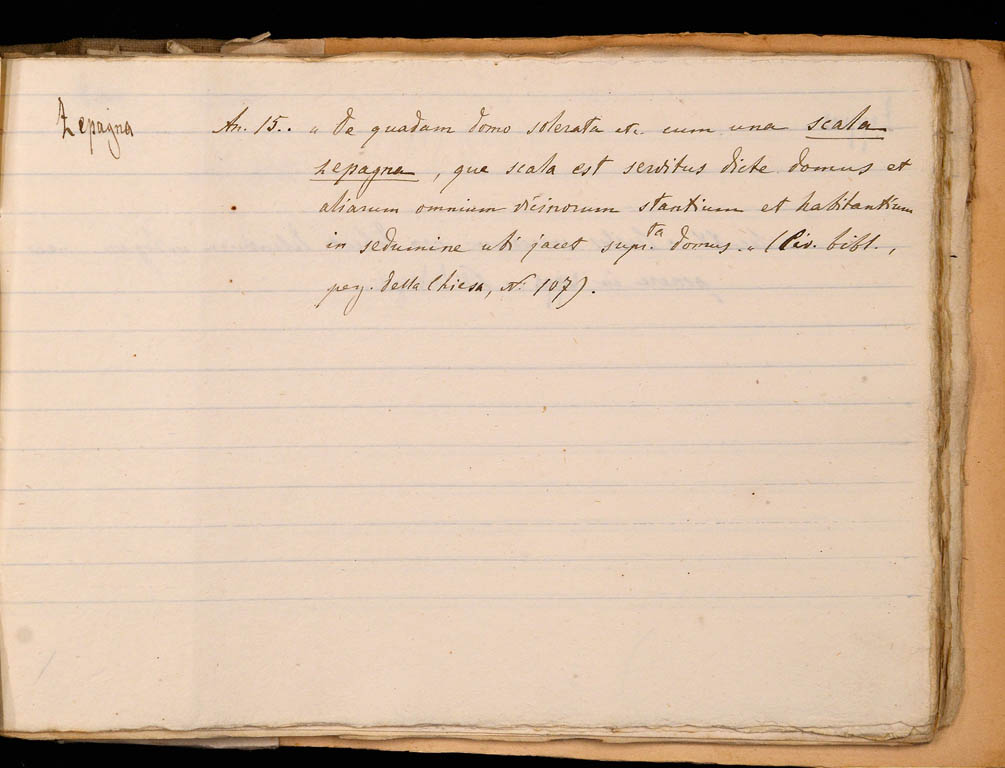 Zepagna
An. 15.. « de quadam domo solerata etc. cum una scala
zepagna, que scala est servitus dicte domus et
aliarum omnium vicinorum stantium et habitantium
in sedumine ubi jacet supr.ta domus. » (Civ. bibl.,
perg. della Chiesa, N. 107).